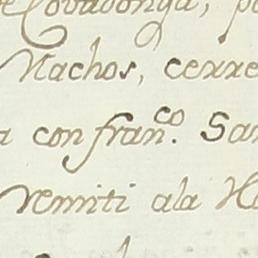 e Covadonga, p
Machos, cerre
a con fran.co San
remiti a la Ha